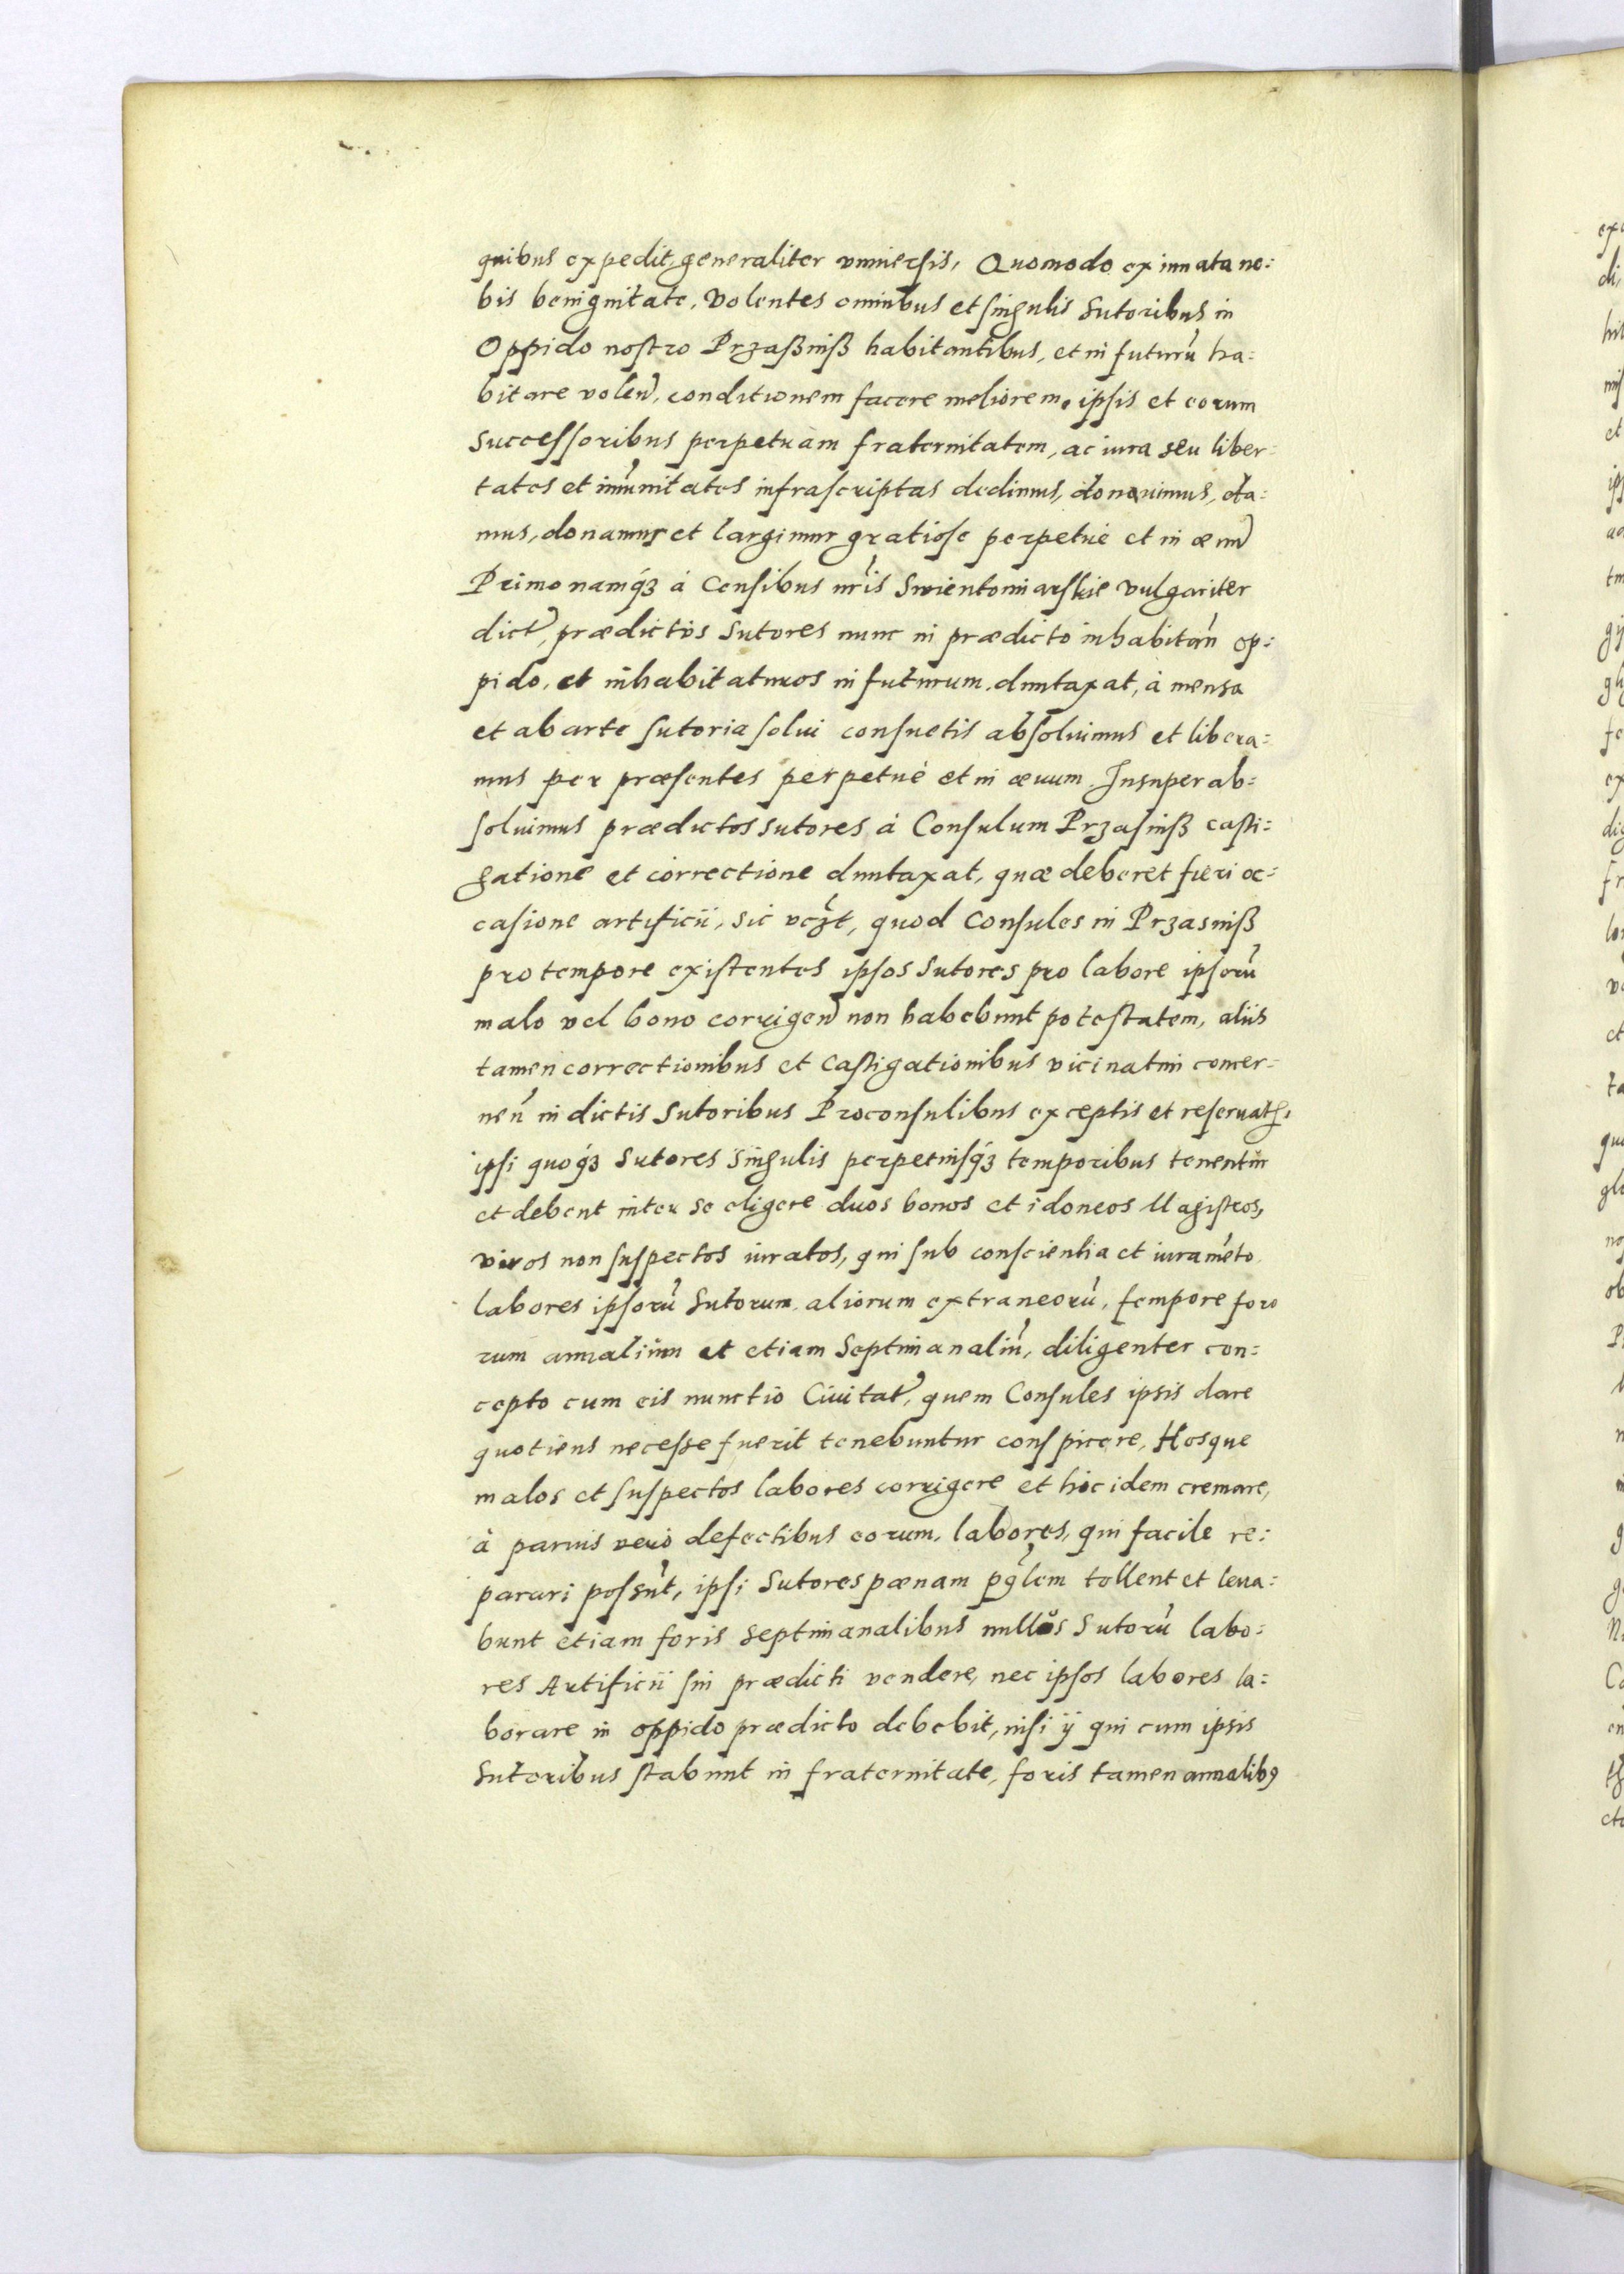 quibus expedit, generaliter vniuersis, Quomodo ex innata no:
bis benignitate, Volentes omnibus et singulis Sutoribus in
Oppido nostro Przaßniß habitantibus, et in futurũ ha:
bitare volen̄, conditionem facere meliorem, ipsis et eorum
Successoribus perpetuam fraternitatem, ac iura seu liber:
tates et im̃unitates infrascriptas dedimus, donauimus, da:
mus, donamus et largimur gratiose perpetuè et in æuũ
Primo namq́ꝫ à Censibus nr̃is Swientomiarskie vulgariter
dict̃, prædictos Sutores nunc in prædicto inhabitañ op:
pido, et inhabitaturos in futurum duntaxat, à mensa
et ab arte sutoria solui consuetis absoluimus et libera:
mus per præsentes perpetuè et in æuum. Insuper ab:
soluimus prædictos sutores à Consulum Przasniß casti:
gatione et correctione duntaxat, quæ deberet fieri oc:
casione artificii, sic vcꝫ̃t, quod Consules in Przasniß
pro tempore existentes ipsos Sutores pro labore ipsorũ
malo vel bono corrigen̄ non habebunt potestatem, aliis
tamen correctionibus et Castigationibus vicinatui concer:
neñ in dictis Sutoribus Proconsulibus exceptis et reseruat̃,
ipsi quoq́ꝫ Sutores singulis perpetuisq́ꝫ temporibus tenentur
et debent inter se eligere duos bonos et idoneos Magistros,
viros non suspectos iuratos, qui sub conscientia et iuram̃eto
labores ipsorũ Sutorum, aliorum extraneorũ, tempore foro
rum annalium et etiam Septimanaliũ, diligenter con:
cepto cum eis nunctio Ciuitat̃, quem Consules ipsis dare
quotiens necesse fuerit tenebuntur conspicere, Hosque
malos et suspectos labores corrigere et hic idem cremare,
à paruis verò defectibus eorum, labores, qui facile re:
parari possũt, ipsi Sutores pænam pg̃lem tollent et leua:
bunt etiam foris Septimanalibus nullos Sutorũ labo:
res Artificii sui prædicti vendere, nec ipsos labores la:
borare in oppido prædicto debebit, nisi ij qui cum ipsis
Sutoribus stabunt in fraternitate, foris tamen annalibꝰ